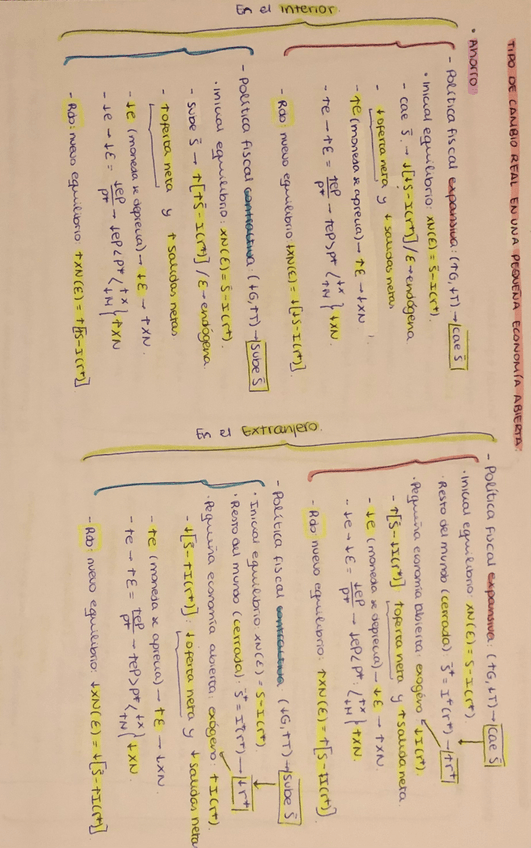 TIPO DE CAMBIO REAL EN UNA PEQUEÑA ECONOMÍA ABIERTA
• Ahorro
En el interior
- Política fiscal expansiva: (↑G, ↓T) → Cae S̄
• Inicial equilibrio: XN(E) = S̄ - I(r*)
- cae S̄ → ↓[↓S̄ - I(r*)] / E → endógena
- ↓ oferta neta y ↓ salidas netas
- ↑e (moneda se aprecia) → ↑E → ↓XN
- ↑e → ↑E = ↑eP/P* → ↑eP > P* ⟨ ↓X ↑M } ↓XN
- Rdo: nuevo equilibrio ↓XN(E) = ↓[↓S̄ - I(r*)]
- Política fiscal contractiva: (↓G, ↑T) → Sube S̄
• Inicial equilibrio: XN(E) = S̄ - I(r*)
- sube S̄ → ↑[↑S̄ - I(r*)] / E → endógena
- ↑ oferta neta y ↑ salidas netas
- ↓e (moneda se deprecia) → ↓E → ↑XN.
- ↓e → ↓E = ↓eP/P* → ↓eP < P* ⟨ ↑X ↓M } ↑XN
- Rdo: nuevo equilibrio ↑XN(E) = ↑[↑S̄ - I(r*)]
En el Extranjero.
- Política fiscal expansiva: (↑G, ↓T) → Cae S̄
• Inicial equilibrio: XN(E) = S̄ - I(r*)
Resto del mundo (cerrada) S̄* = I*(r*) → ↑r*
• Pequeña economía abierta: exogéno ↓I(r*).
- ↑[S̄ - ↓I(r*)]: ↑oferta neta y ↑ salida neta
- ↓e (moneda se deprecia) → ↓E → ↑XN.
- ↓e → ↓E = ↓eP/P* → ↓eP < P*: ⟨ ↑X ↓M } ↑XN.
- Rdo: nuevo equilibrio: ↑XN(E) = ↑[S̄ - ↓I(r*)]
- Política fiscal contractiva: (↓G, ↑T) → Sube S̄
• Inicial equilibrio XN(E) = S̄ - I(r*)
• Resto del mundo (cerrada). S̄* = I*(r*) → ↓r*
• Pequeña economía abierta: exógeno ↑I(r*).
- ↓[S̄ - ↑I(r*)]: ↓oferta neta y ↓ salidas netas
- ↑e (moneda se aprecia) → ↑E → ↓XN.
- ↑e → ↑E = ↑eP/P* → ↑eP > P* ⟨ ↓X ↑M } ↓XN
- Rdo: nuevo equilibrio ↓XN(E) = ↓[S̄ - ↑I(r*)]